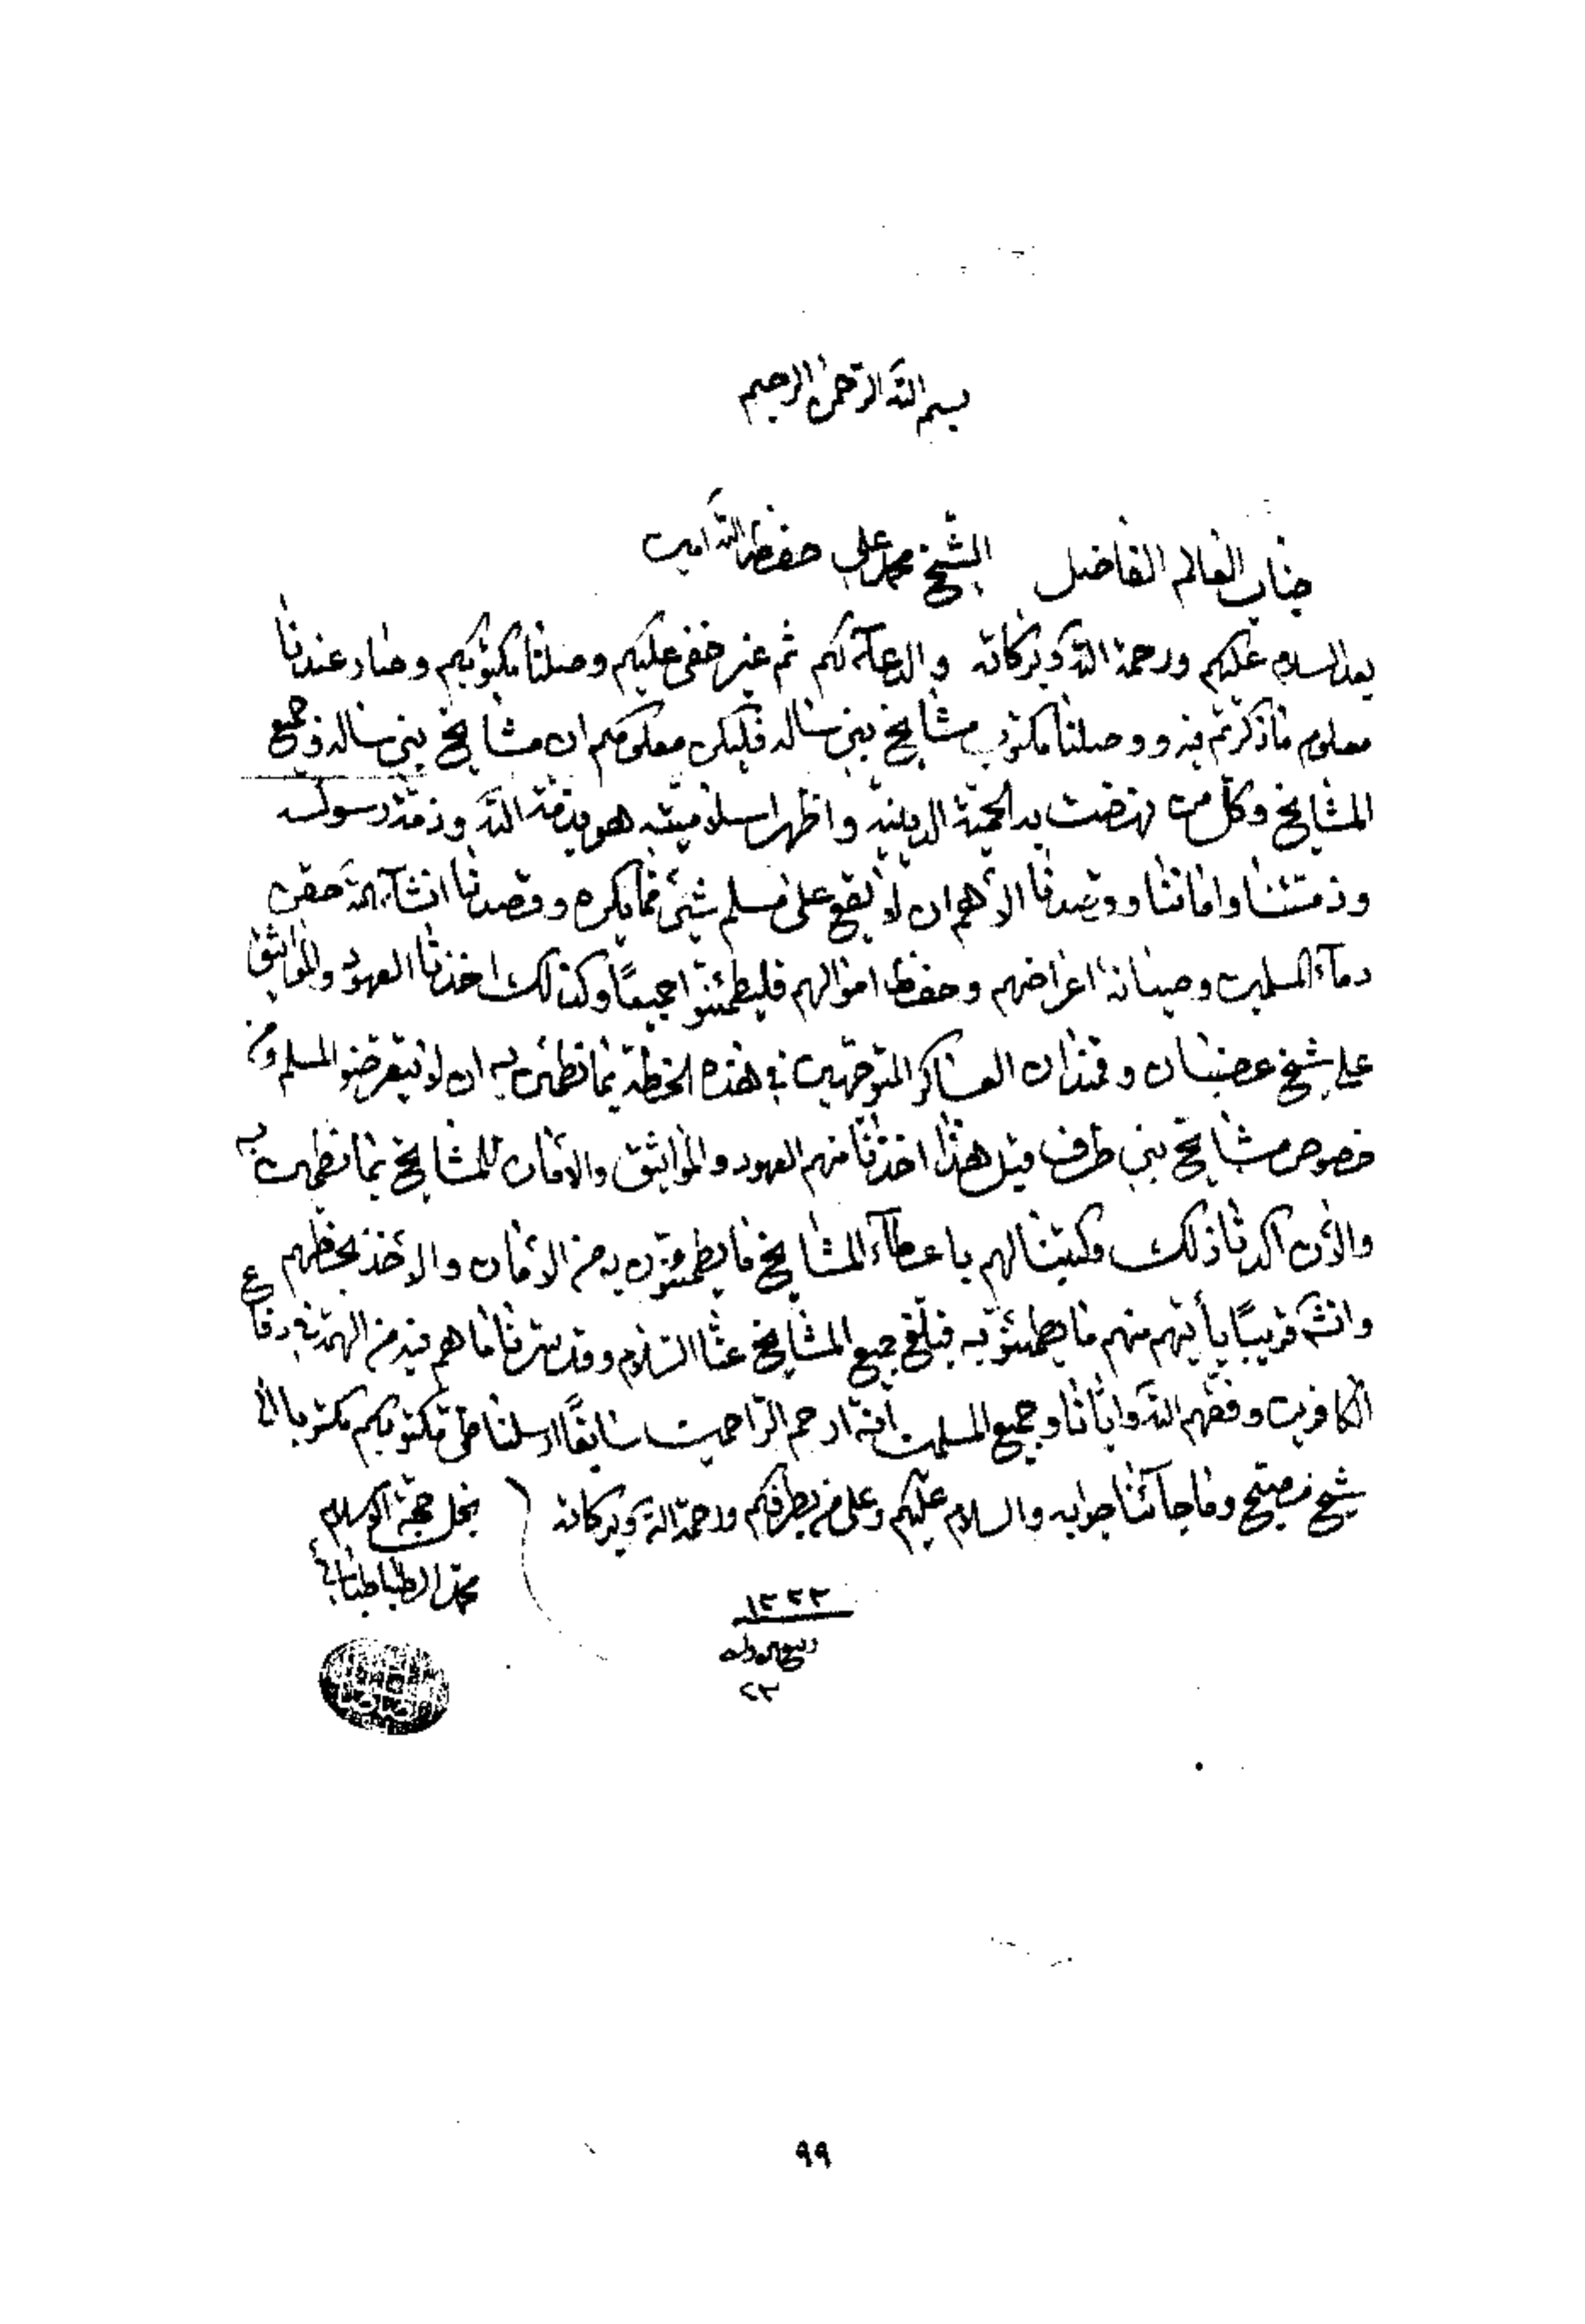 بسم الله الرحمن الرحيم
جناب العالم الفاضل الشيخ محمد علي حفظه الله امين
بعد السلام عليكم ورحمة الله وبركاته والدعآء لكم ثم غير خفى عليكم وصلنا مكتوبكم وصار عندنا
معلوم ماذكرتم فيه ووصلنا مكتوب مشايخ بنى ساله فليكن معلومكم ان مشايخ بنى ساله وجميع
المشايخ وكل من نهضت به الحمية الدينية واظهر اسلاميته هو بذمة الله وذمة رسوله
وذمتنا واماننا وقصدنا الأهم ان لا يقع على مسلم شيئ مما يكره وقصدنا انشآءالله حقن
دمآء المسلمين وصيانة اعراضهم وحفظ اموالهم فليطمئنوا جميعاً وكذلك اخذنا العهود والمواثيق
على شيخ عضبان وقمندان العساكر المتوجهين في هذه الخطة بما نطمئن به ان لا يتعرضوا لمسلم ومن
خصوص مشايخ بنى طرف قبل هذا اخذنا منهم العهود والمواثيق والامان للمشايخ بما نطمئن به
والأن اكدنا ذلك وكتبنا لهم باعطآء المشايخ ما يطمئنون به من الأمان والاخذ بحظهم
وانشآء قريباً يأتيهم منهم ما يطمئنو به فبلّغ جميع المشايخ عنّا السلام وقد سرنا ما هم فيه من الهمة في دفاع
الكافرين وفقهم الله وايانا وجميع المسلمين انه ارحم الراحمين سابقاً ارسلنا مكتوبكم مكتوبا الى
شيخ مصبح وما جائنا جوابه والسلام عليكم وعلى من بطرفكم ورحمة الله وبركاته
نجل حجة الاسلام
محمد الطباطبائي
١٣٣٣
ربيع الاول
٢٣
٩٩